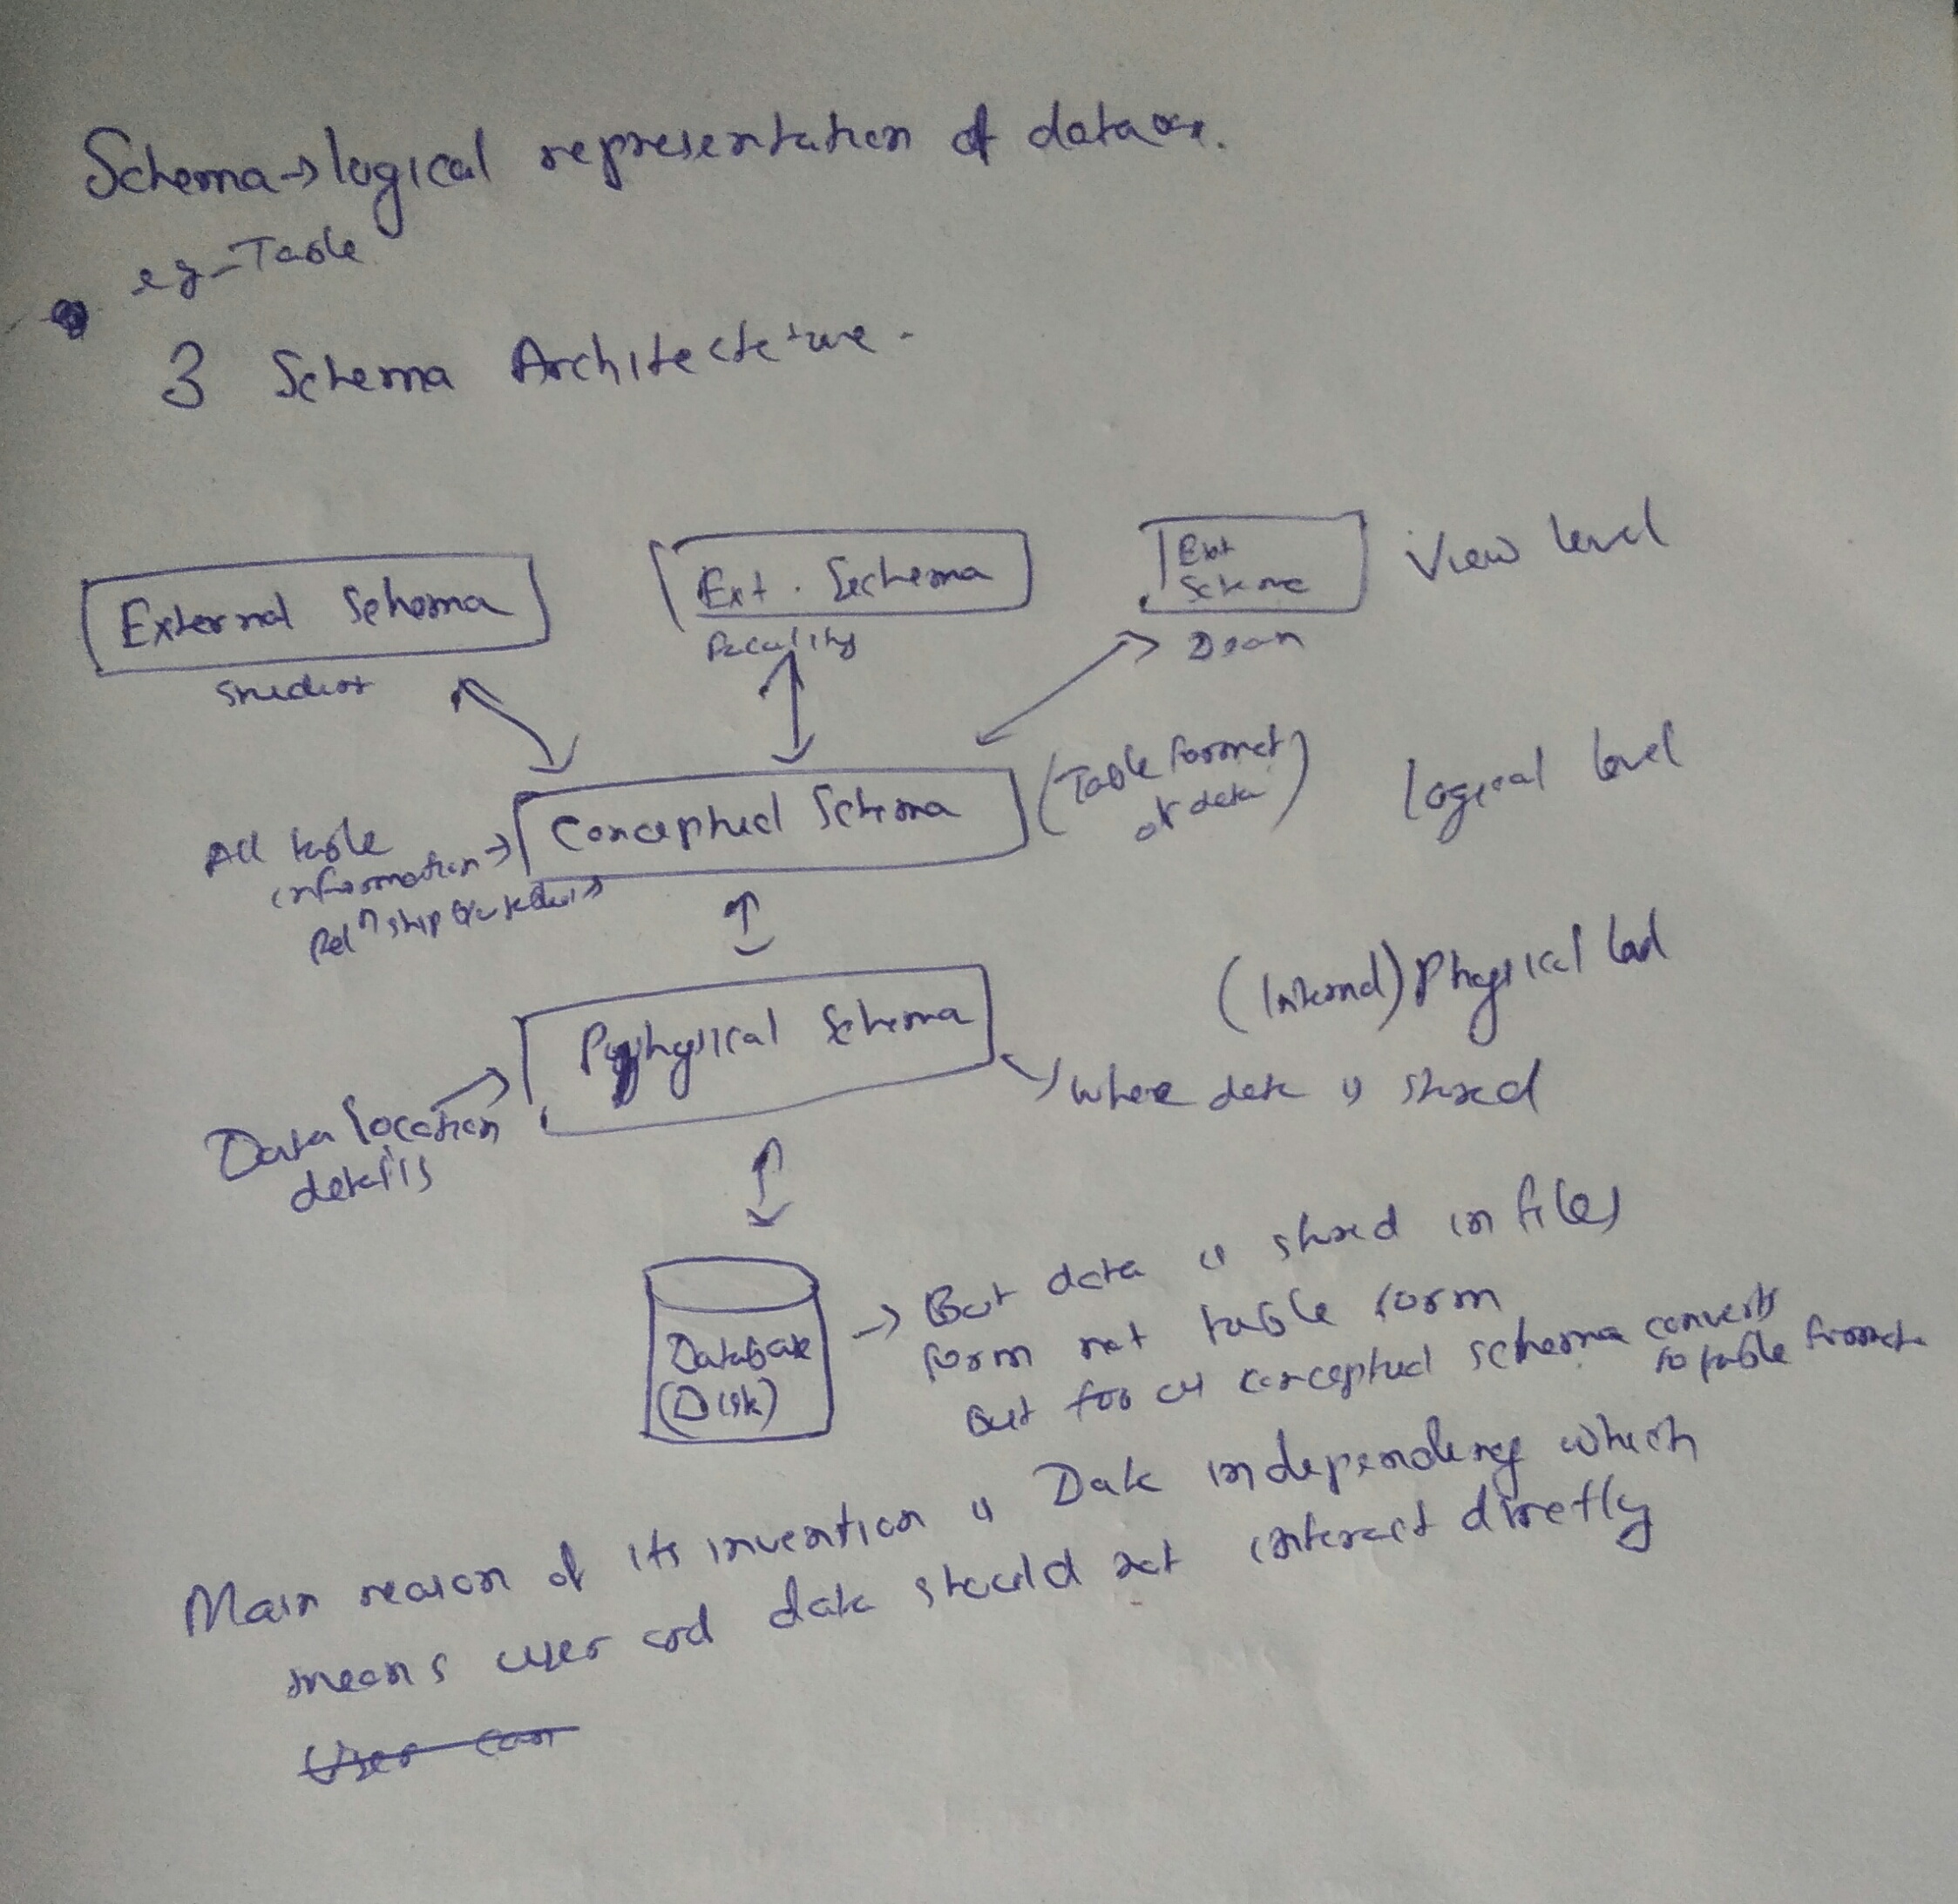 Schema → logical representation of data
eg - Table
3 Schema Architecture -
External Schema
Student
Ext. Schema
Faculity
Ext
Scheme
Dean
View level
All table
information →
Reln ship
Conceptual Schema
(Table format
of data)
Logical level
Physical Schema
(Internal) Physical level
Data location
details
→ where data is stored
Database
(Disk)
→ But data is stored in files
form not table form
But for us conceptual schema converts
to table format
Main reason of its invention is Data independency which
means user and data should not interact directly
User can